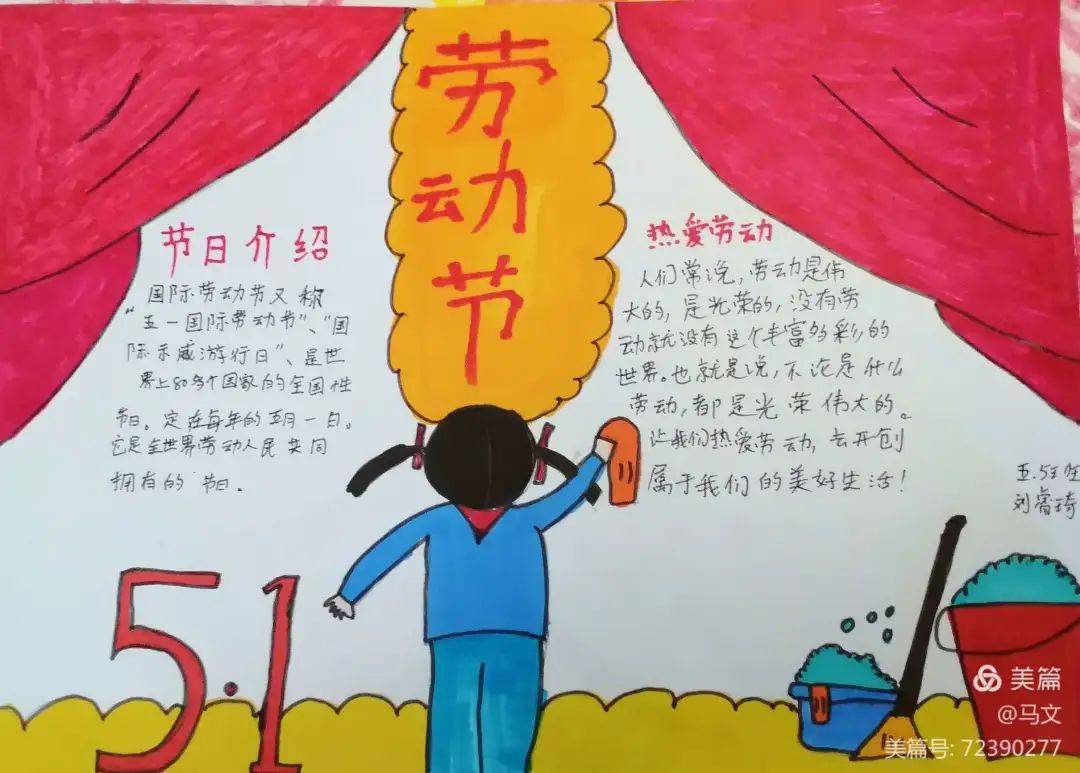 劳动节
节日介绍
国际劳动节又称
“五一国际劳动节”、“国
际示威游行日”、是世
界上80多个国家的全国性
节日。定在每年的五月一日。
它是全世界劳动人民共同
拥有的节日.
热爱劳动
人们常说,劳动是伟
大的,是光荣的,没有劳
动就没有这个丰富多彩的
世界。也就是说,不论是什么
劳动,都是光荣伟大的。
让我们热爱劳动,去开创
属于我们的美好生活!
五.5班
刘睿琦
5.1
美篇
@马文
美篇号: 72390277